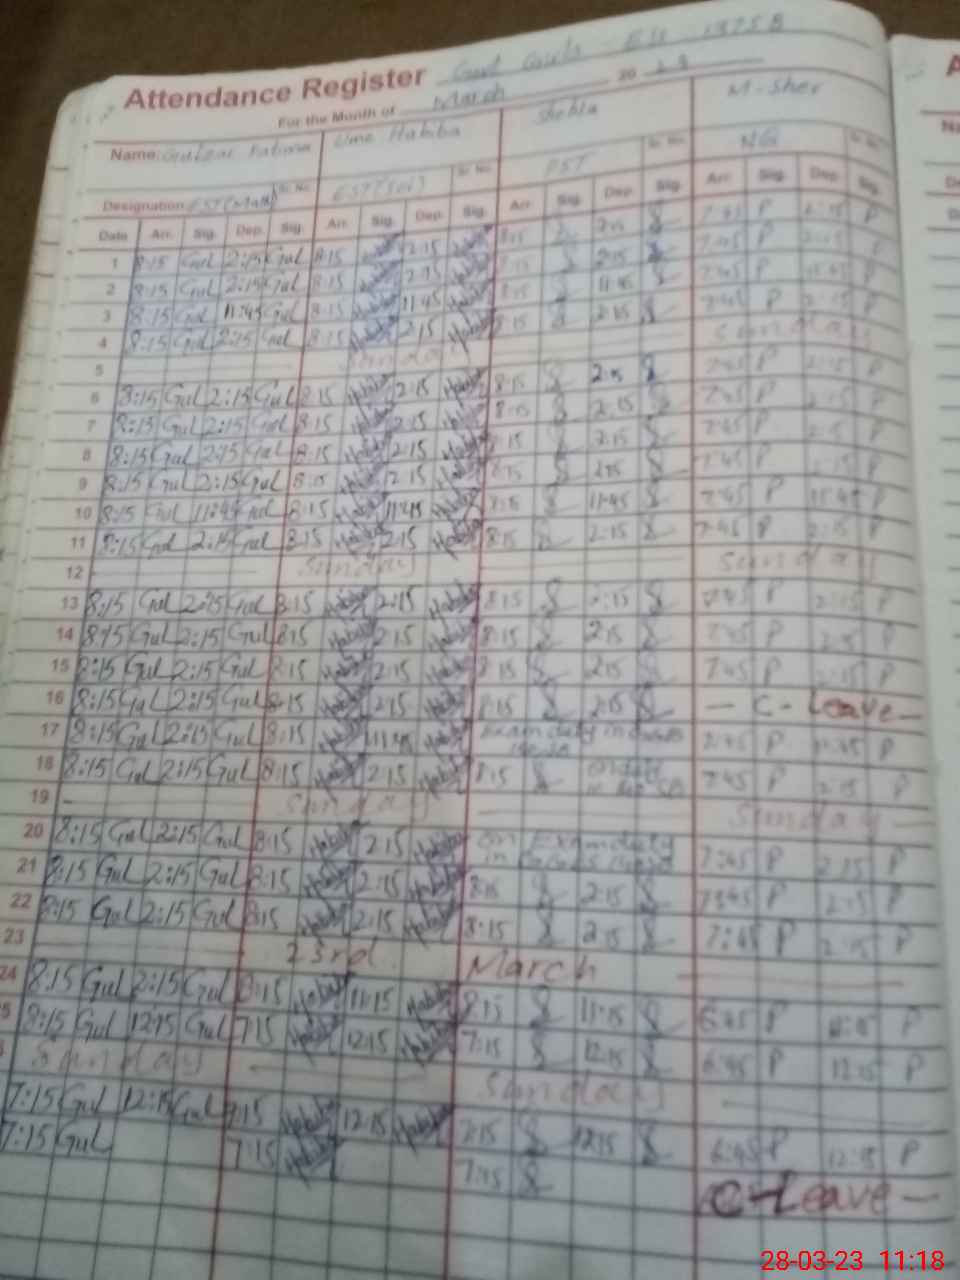 Attendance Register Govt Girls
For the Month of March 20 23
Name: Gulzar Fatima Ume Habiba Shehla M-Sher
Sr. No. Sr. No. Sr. No.
Designation EST(Math) EST(Sci) PST NG
Date Arr. Sig. Dep. Sig. Arr. Sig. Dep. Sig. Arr. Sig. Dep. Sig. Arr. Sig. Dep. Sig.
1 8:15 Gul 2:15 Gul 8:15 Habiba 2:15 Habiba 8:15 2:15 7:45 P 2:15 P
2 8:15 Gul 2:15 Gul 8:15 Habiba 2:15 Habiba 2:15 7:45 P 2:15 P
3 8:15 Gul 11:45 Gul 8:15 Habiba 11:45 Habiba 8:15 11:45 7:45 P P
4 8:15 Gul 2:15 Gul 8:15 Habiba 2:15 Habiba 8:15 2:15 7:45 P 2:15 P
5 Sunday Sunday
6 8:15 Gul 2:15 Gul 8:15 Habiba 2:15 Habiba 8:15 2:15 7:45 P 2:15 P
7 8:15 Gul 2:15 Gul 8:15 Habiba 2:15 Habiba 8:15 2:15 7:45 P 2:15 P
8 8:15 Gul 2:15 Gul 8:15 Habiba 2:15 Habiba 8:15 2:15 7:45 P 2:15 P
9 8:15 Gul 2:15 Gul 8:15 Habiba 2:15 Habiba 8:15 2:15 7:45 P 2:15 P
10 8:15 Gul 11:45 Gul 8:15 Habiba 11:45 Habiba 8:15 11:45 7:45 P P
11 8:15 Gul 2:15 Gul 8:15 Habiba 2:15 Habiba 8:15 2:15 7:45 P 2:15 P
12 Sunday Sunday
13 8:15 Gul 2:15 Gul 8:15 Habiba 2:15 Habiba 8:15 2:15 7:45 P 2:15 P
14 8:15 Gul 2:15 Gul 8:15 Habiba 2:15 Habiba 8:15 2:15 7:45 P 2:15 P
15 8:15 Gul 2:15 Gul 8:15 Habiba 2:15 Habiba 8:15 2:15 7:45 P 2:15 P
16 8:15 Gul 2:15 Gul 8:15 Habiba 2:15 Habiba 8:15 2:15 - C - Leave -
17 8:15 Gul 2:15 Gul 8:15 Habiba 11:45 Habiba Exam duty in 7:45 P P
18 8:15 Gul 2:15 Gul 8:15 Habiba 2:15 Habiba 8:15 on duty 7:45 P 2:15 P
19 Sunday Sunday
20 8:15 Gul 2:15 Gul 8:15 Habiba 2:15 Habiba on Exam duty in 7:45 P 2:15 P
21 8:15 Gul 2:15 Gul 8:15 Habiba 2:15 Habiba 8:15 2:15 7:45 P 2:15 P
22 8:15 Gul 2:15 Gul 8:15 Habiba 2:15 Habiba 8:15 2:15 7:45 P 2:15 P
23 23rd March
24 8:15 Gul 2:15 Gul 8:15 Habiba 11:15 Habiba 8:15 11:15 6:45 P P
5 8:15 Gul 12:15 Gul 7:15 Habiba 12:15 Habiba 7:15 12:15 6:45 P 12:15 P
Sunday Sunday
7:15 Gul 12:15 Gul 7:15 Habiba 12:15 Habiba 7:15 12:15 6:45 P 12:15 P
7:15 Gul 7:15 Habiba 7:15 C-Leave -
28-03-23 11:18